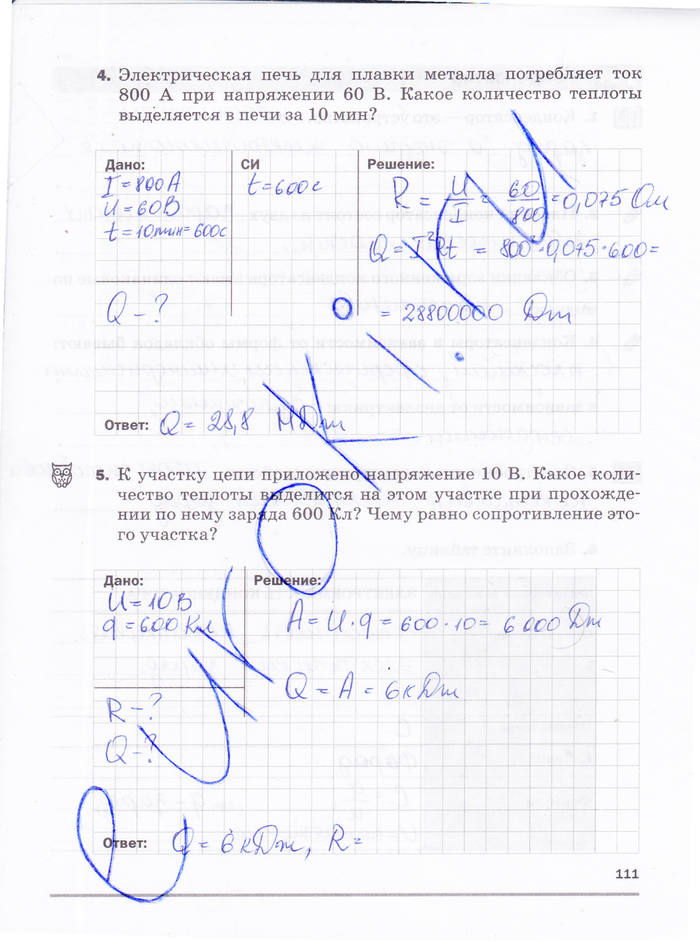 4. Электрическая печь для плавки металла потребляет ток
800 А при напряжении 60 В. Какое количество теплоты
выделяется в печи за 10 мин?
Дано: СИ Решение:
I = 800 А t = 600 с R = U/I = 60/800 = 0,075 Ом
U = 60 В
t = 10 мин = 600 с Q = I²Rt = 800² · 0,075 · 600 =
Q – ? = 28800000 Дж
Ответ: Q = 28,8 МДж
5. К участку цепи приложено напряжение 10 В. Какое коли-
чество теплоты выделится на этом участке при прохожде-
нии по нему заряда 600 Кл? Чему равно сопротивление это-
го участка?
Дано: Решение:
U = 10 В
q = 600 Кл A = U · q = 600 · 10 = 6000 Дж
Q = A = 6 кДж
R – ?
Q – ?
Ответ: Q = 6 кДж, R =
111